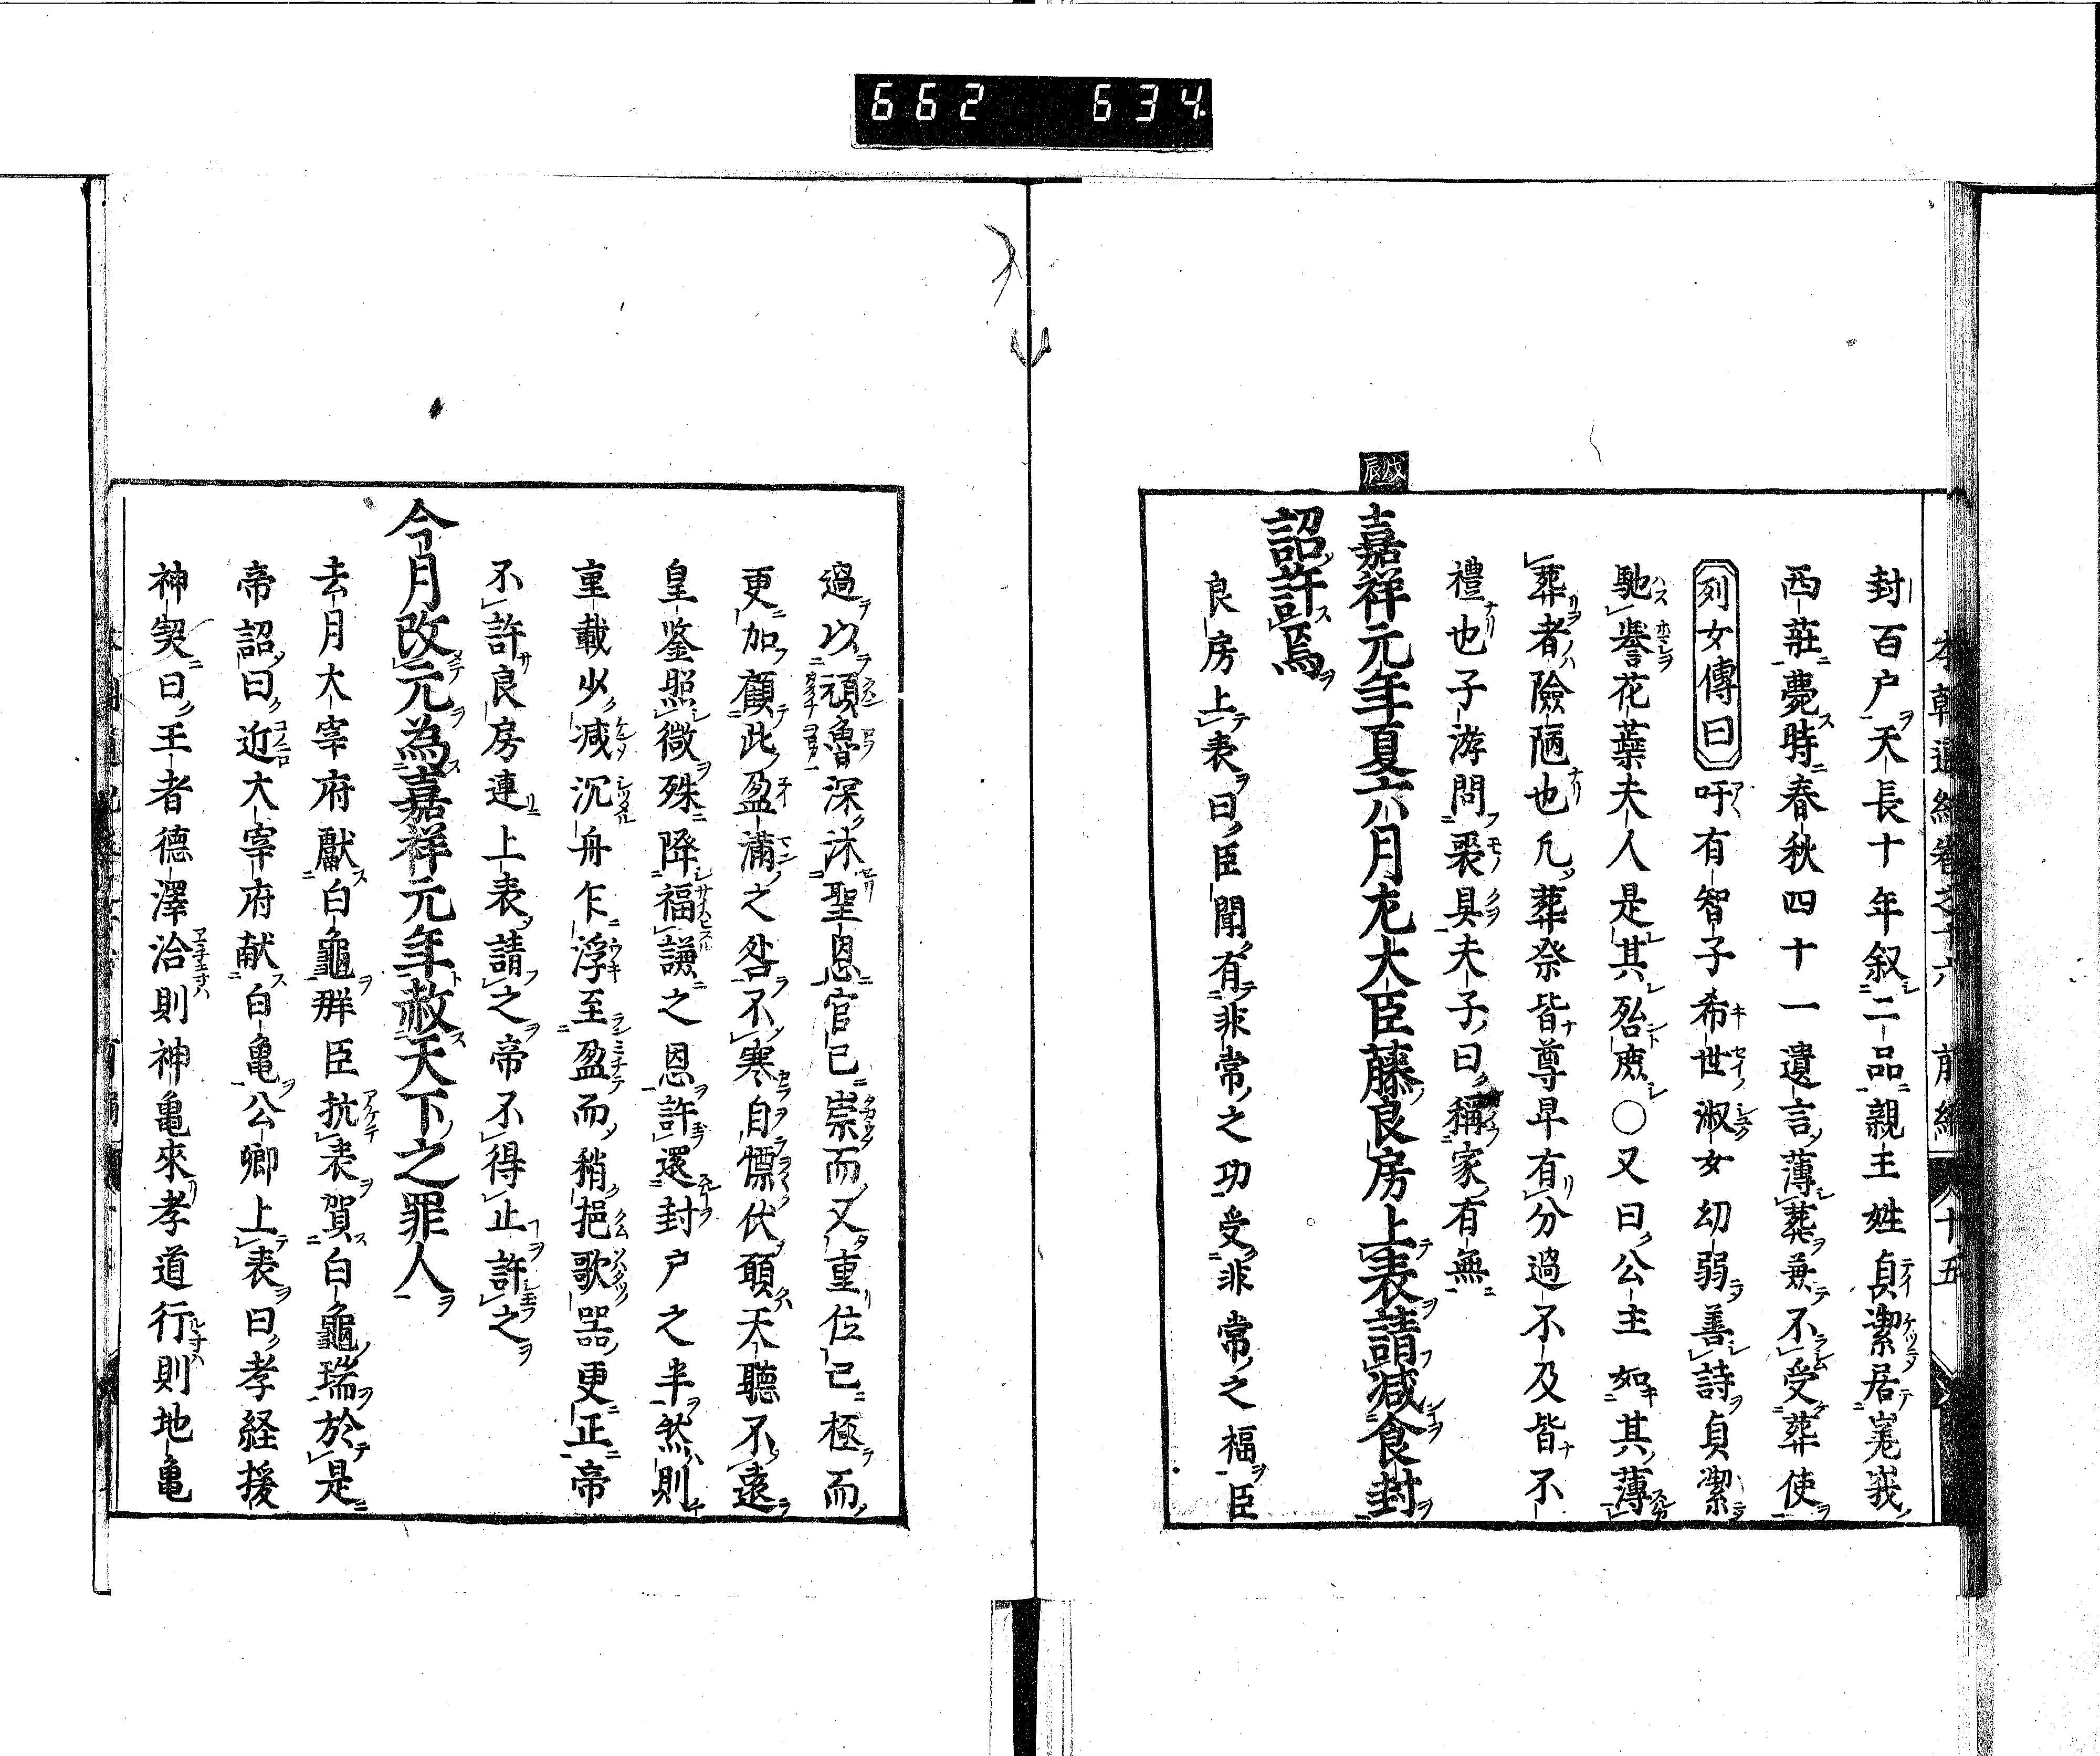 662 634
本朝通紀卷之十六 前編 十五
封百戸天長十年叙二品親王姓貞潔居嵬峩
西莊薨時春秋四十一遺言薄葬兼不受葬使
列女傳曰吁有智子希世淑女幼弱善詩貞潔
馳譽花蘂夫人是其殆庶○又曰公主如其薄
葬者險陋也凡葬祭皆尊卑有分過不及皆不
禮也子游問喪具夫子曰稱家有無
戊辰
嘉祥元年夏六月左大臣藤良房上表請減食封
詔許焉
良房上表曰臣聞有非常之功受非常之福臣
過以頑魯深沐聖恩官已崇而又重位已極而
更加顧此盈滿之咎不寒自慄伏願天聽不遠
皇鉴照微殊降福謙之恩許還封戸之半然則
重載少減沉舟乍浮至盈而稍挹歌器更正帝
不許良房連上表請之帝不得止許之
今月改元為嘉祥元年赦天下之罪人
去月大宰府獻白龜群臣抗表賀白龜瑞於是
帝詔曰近大宰府献白亀公卿上表曰孝経援
神契曰王者德澤洽則神亀來孝道行則地亀